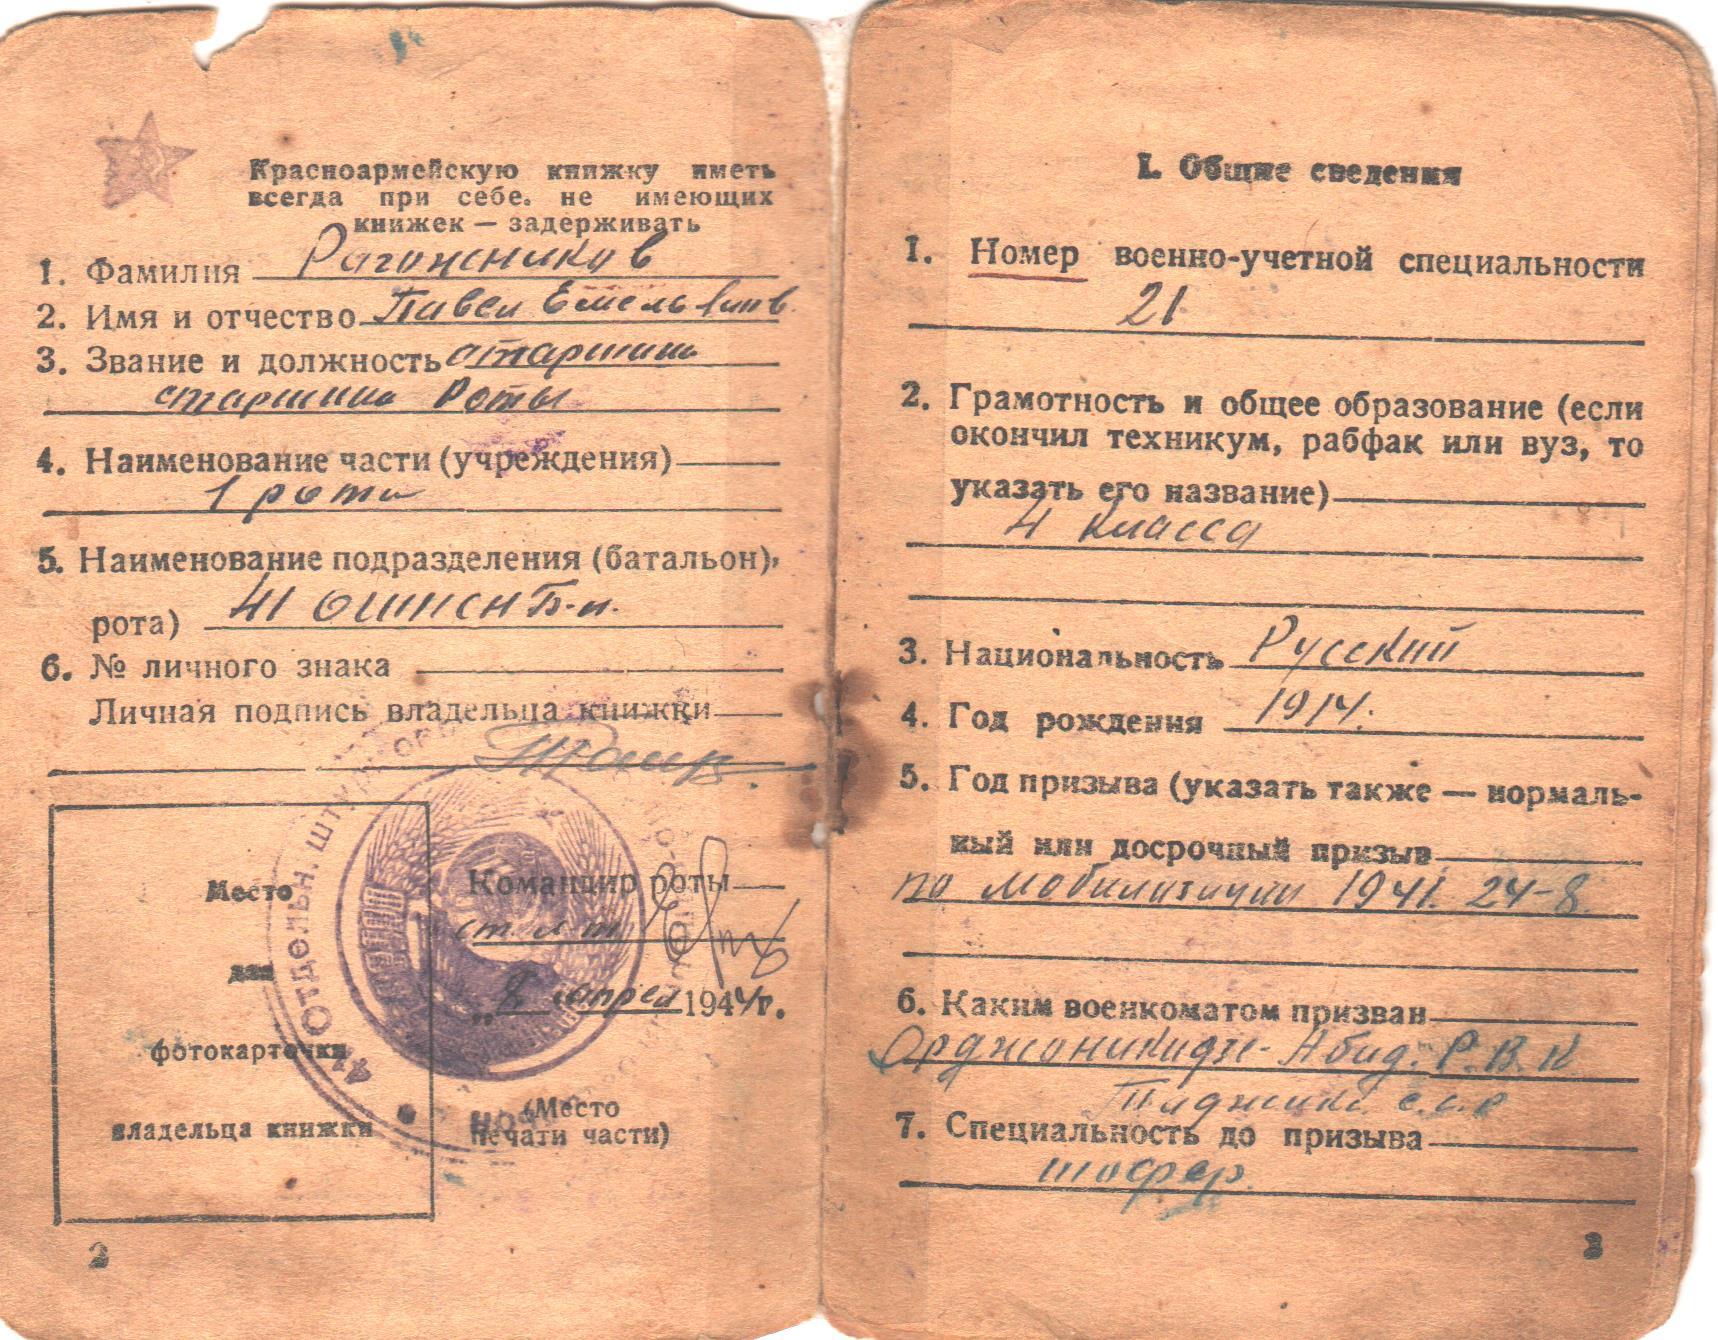 Красноармейскую книжку иметь
всегда при себе. не имеющих
книжек — задерживать
1. Фамилия Рагожников
2. Имя и отчество Павел Емельянов
3. Звание и должность старшина
старшина Роты
4. Наименование части (учреждения)
1 рота
5. Наименование подразделения (батальон),
рота) 41 ОШИСН Б-н.
6. № личного знака
Личная подпись владельца книжки
Место
для
фотокарточки
владельца книжки
Командир роты
ст л-т
„8 апрел 1944г.
(Место
печати части)
41 ОТДЕЛЬН. ШТУ
2
I. Общие сведения
1. Номер военно-учетной специальности
21
2. Грамотность и общее образование (если
окончил техникум, рабфак или вуз, то
указать его название)
4 класса
3. Национальность Русский
4. Год рождения 1914.
5. Год призыва (указать также — нормаль-
ный или досрочный призыв
по мобилизации 1941. 24-8.
6. Каким военкоматом призван
Орджоникидзе-Абад. Р.В.К
Таджик. с.с.р
7. Специальность до призыва
шофер.
3